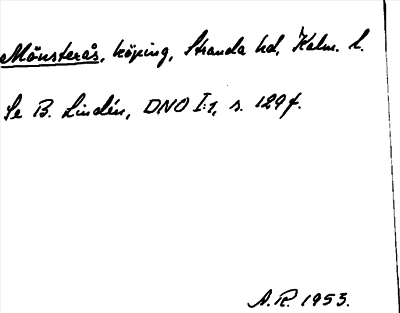 Mönsterås, köping, Stranda hd, Kalm. l.
Se B. Lindén, DNO I:1, s. 129 f.
A.R. 1953.